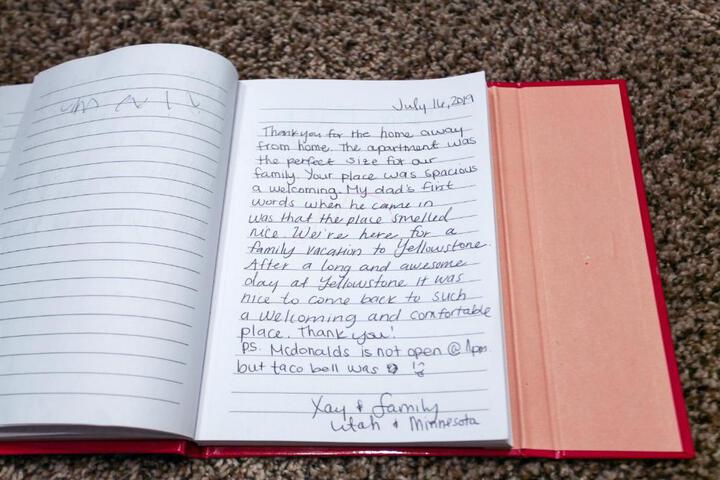 July 16, 2019
Thank you for the home away
from home. The apartment was
the perfect size for our
family. Your place was spacious
a welcoming. My dad's first
words when he came in
was that the place smelled
nice. We're here for a
family vacation to Yellowstone.
After a long and awesome
day at Yellowstone it was
nice to come back to such
a welcoming and comfortable
place. Thank you!
PS. Mcdonalds is not open @ 1pm
but taco bell was
Xay & family
Utah & Minnesota